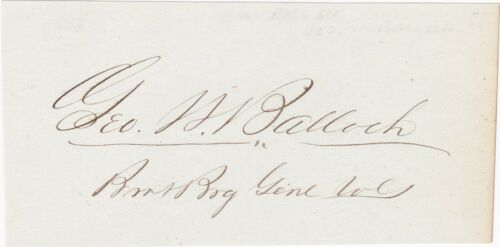 Geo. W. Balloch
Bvt Brig Genl Vols